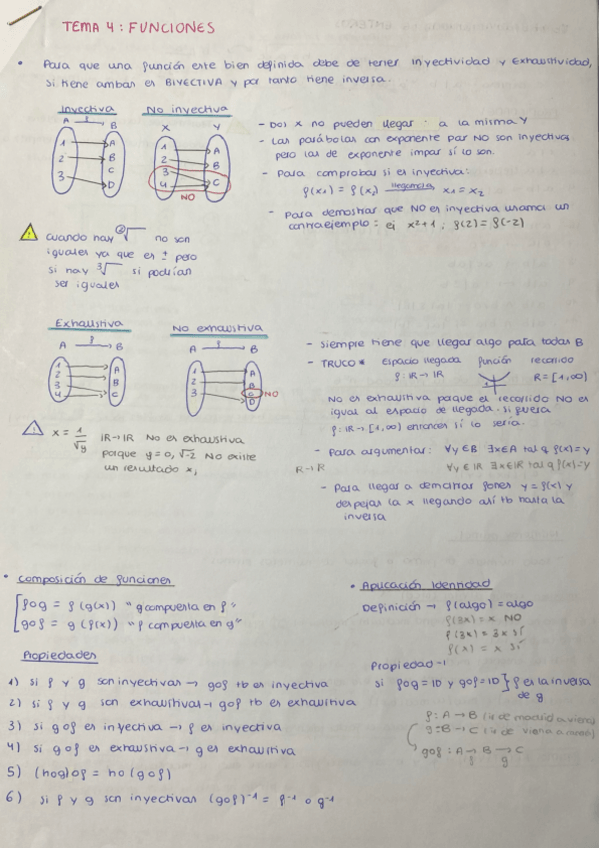 TEMA 4: FUNCIONES
• Para que una función este bien definida debe de tener inyectividad y Exhaustividad,
si tiene ambas es BIYECTIVA y por tanto tiene inversa.
Inyectiva
A f B
1 A
2 B
3 C
D
No inyectiva
X Y
1 A
2 B
3
4 C
NO
- Dos x no pueden llegar a la misma y
- Las parábolas con exponente par NO son inyectivas
pero las de exponente impar sí lo son.
- Para comprobar si es inyectiva:
f(x₁) = f(x₂) llegamos a x₁ = x₂
- Para demostrar que NO es inyectiva usamos un
contraejemplo: ej x²+1 ; f(2) = f(-2)
Cuando hay ²√ no son
iguales ya que es ± pero
si hay ³√ si podrían
ser iguales
Exhaustiva
A f B
1 A
2 B
3 C
4
No exhaustiva
A B
1 A
2 B
3 C NO
D
- Siempre tiene que llegar algo para todas B
- TRUCO* espacio llegada función recorrido
f: IR → IR R = [1,∞)
No es exhaustiva porque el recorrido NO es
igual al espacio de llegada. Si fuera
f: IR → [1,∞) entonces sí lo sería.
x = 1/√y IR → IR No es exhaustiva
porque y = 0, √-2 No existe
un resultado x,
- Para argumentar: ∀y∈B ∃x∈A tal q f(x)=y
R → R ∀y∈IR ∃x∈IR tal q f(x)=y
- Para llegar a demostrar pones y = f(x) y
despejas la x llegando así tb hasta la
inversa
• Composición de funciones
fog = f(g(x)) "g compuesta en f"
gof = g(f(x)) "f compuesta en g"
Propiedades
1) si f y g son inyectivas → gof tb es inyectiva
2) si f y g son exhaustivas → gof tb es exhaustiva
3) si gof es inyectiva → f es inyectiva
4) si gof es exhaustiva → g es exhaustiva
5) (hog)of = ho(gof)
6) si f y g son inyectivas (gof)⁻¹ = f⁻¹ o g⁻¹
• Aplicación Identidad
Definición → f(algo) = algo
f(3x) = x NO
f(3x) = 3x sí
f(x) = x sí
Propiedad -1
si fog = ID y gof = ID } f es la inversa
de g
f: A → B (id de madrid a viena)
g: B → C (id de viena a
gof: A → B → C
f g